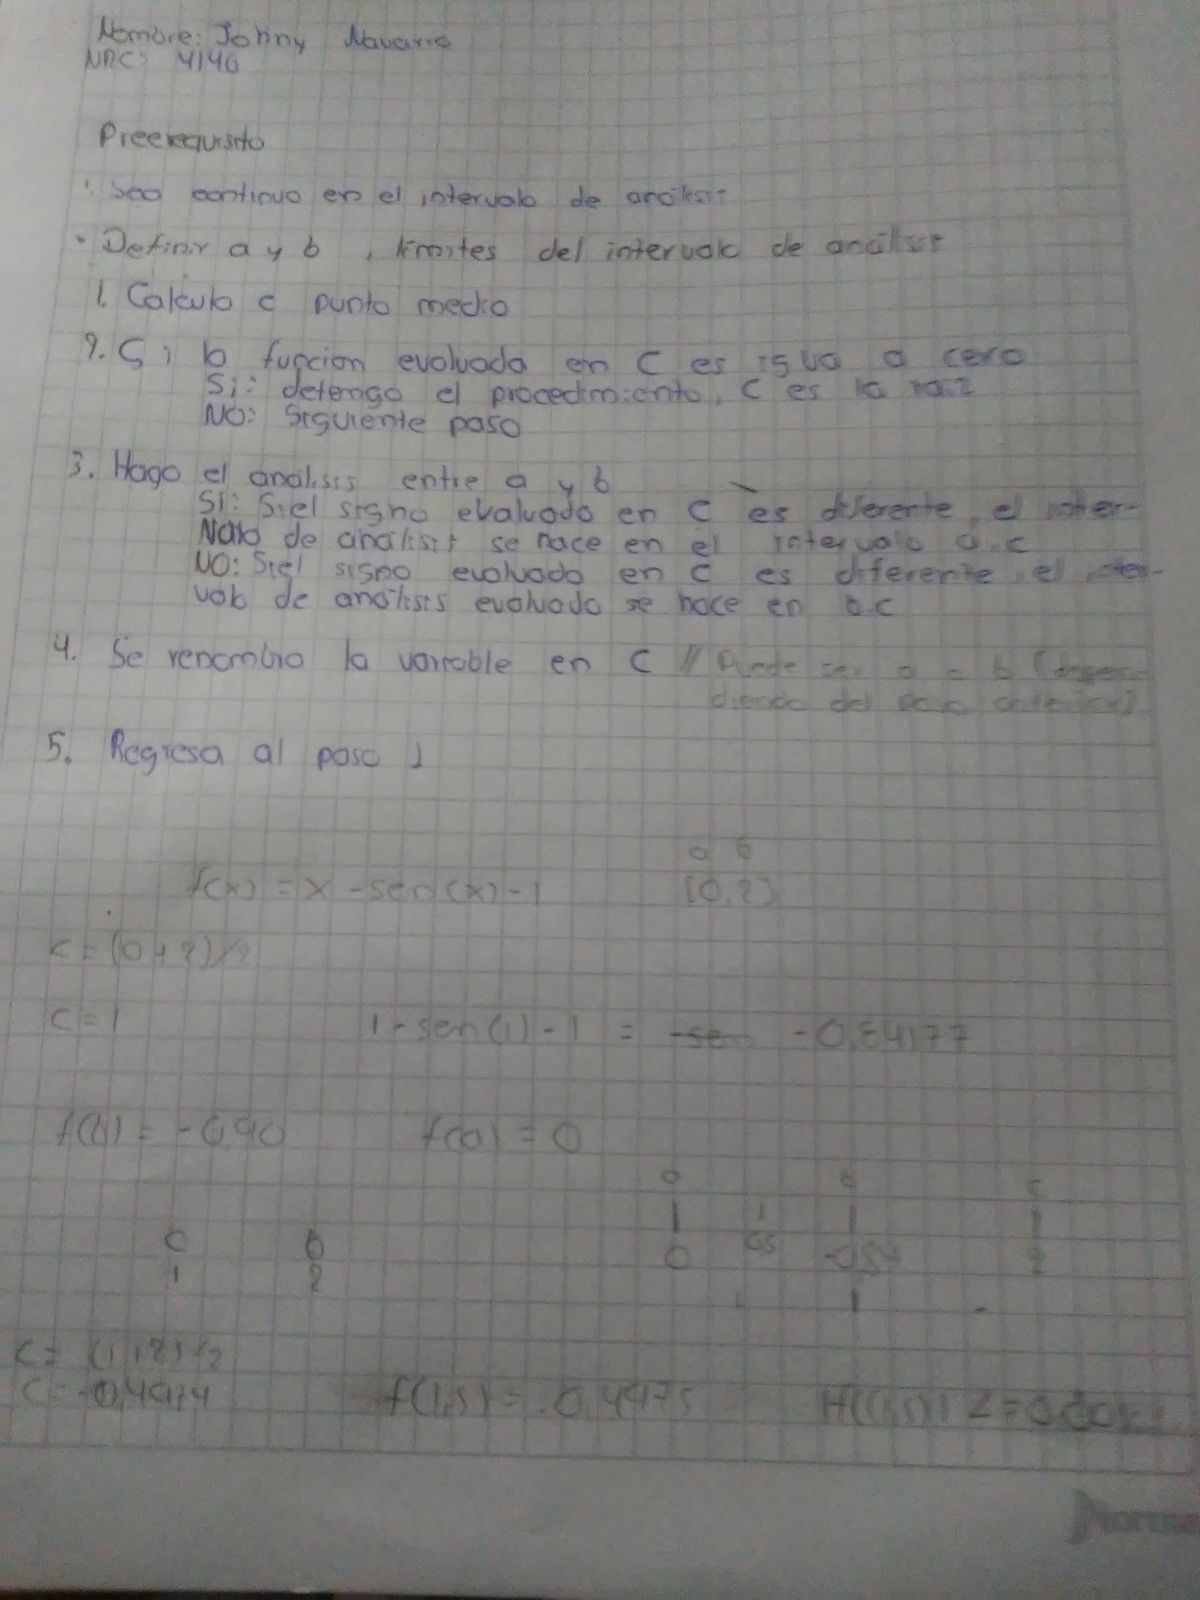 Nombre: Johny Navarro
NRC: 4146
Preerequisito
· Sea continuo en el intervalo de analisis
· Definir a y b , limites del intervalo de análisis
1. Calculo c punto medio
2. Si la funcion evaluada en C es igua a cero
Si: detengo el procedimiento, C es la raiz
NO: Siguiente paso
3. Hago el analisis entre a y b
SI: Si el signo evaluado en C es diferente, el inter-
valo de analisis se hace en el intervalo a.c
NO: Si el signo evaluado en C es diferente el inter-
valo de análisis evaluado se hace en a.c
4. Se renombra la variable en C // Puede ser a = b (depen-
diendo del paso anterior)
5. Regresa al paso 1
a b
f(x) = x - sen(x) - 1 [0,2]
c = (0+2)/2
c = 1 1 - sen(1) - 1 = -0,84177
f(b) = -0,90 f(a) = 0
a c
0 0,5 -0,84 2
c b
1 2
1
C = -0,4974 f(1,5) = -0,4975